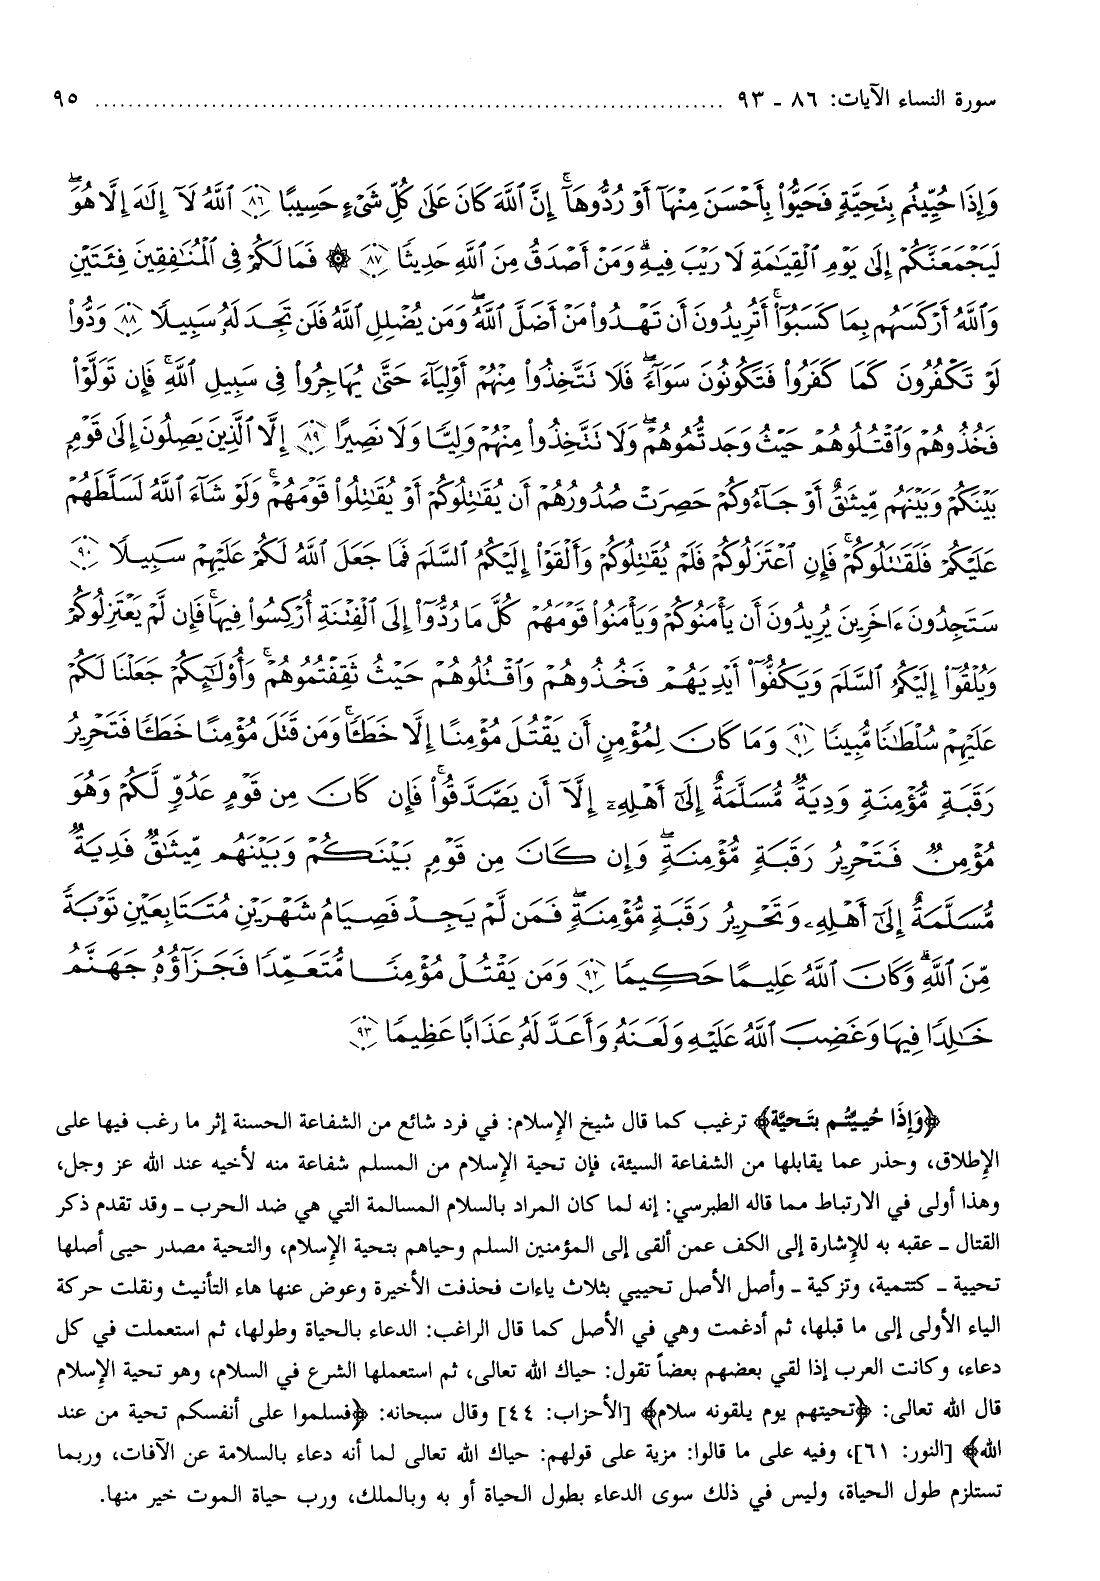 سورة النساء الآيات: ٨٦ ـ ٩٣ ........................................................................ ٩٥
وَإِذَا حُيِّيتُم بِتَحِيَّةٍ فَحَيُّوا۟ بِأَحْسَنَ مِنْهَآ أَوْ رُدُّوهَآ ۗ إِنَّ ٱللَّهَ كَانَ عَلَىٰ كُلِّ شَىْءٍ حَسِيبًا ٨٦ ٱللَّهُ لَآ إِلَـٰهَ إِلَّا هُوَ ۚ
لَيَجْمَعَنَّكُمْ إِلَىٰ يَوْمِ ٱلْقِيَـٰمَةِ لَا رَيْبَ فِيهِ ۗ وَمَنْ أَصْدَقُ مِنَ ٱللَّهِ حَدِيثًا ٨٧ ۞ فَمَا لَكُمْ فِى ٱلْمُنَـٰفِقِينَ فِئَتَيْنِ
وَٱللَّهُ أَرْكَسَهُم بِمَا كَسَبُوٓا۟ ۚ أَتُرِيدُونَ أَن تَهْدُوا۟ مَنْ أَضَلَّ ٱللَّهُ ۖ وَمَن يُضْلِلِ ٱللَّهُ فَلَن تَجِدَ لَهُۥ سَبِيلًا ٨٨ وَدُّوا۟
لَوْ تَكْفُرُونَ كَمَا كَفَرُوا۟ فَتَكُونُونَ سَوَآءً ۖ فَلَا تَتَّخِذُوا۟ مِنْهُمْ أَوْلِيَآءَ حَتَّىٰ يُهَاجِرُوا۟ فِى سَبِيلِ ٱللَّهِ ۚ فَإِن تَوَلَّوْا۟
فَخُذُوهُمْ وَٱقْتُلُوهُمْ حَيْثُ وَجَدتُّمُوهُمْ ۖ وَلَا تَتَّخِذُوا۟ مِنْهُمْ وَلِيًّا وَلَا نَصِيرًا ٨٩ إِلَّا ٱلَّذِينَ يَصِلُونَ إِلَىٰ قَوْمٍ
بَيْنَكُمْ وَبَيْنَهُم مِّيثَـٰقٌ أَوْ جَآءُوكُمْ حَصِرَتْ صُدُورُهُمْ أَن يُقَـٰتِلُوكُمْ أَوْ يُقَـٰتِلُوا۟ قَوْمَهُمْ ۚ وَلَوْ شَآءَ ٱللَّهُ لَسَلَّطَهُمْ
عَلَيْكُمْ فَلَقَـٰتَلُوكُمْ ۚ فَإِنِ ٱعْتَزَلُوكُمْ فَلَمْ يُقَـٰتِلُوكُمْ وَأَلْقَوْا۟ إِلَيْكُمُ ٱلسَّلَمَ فَمَا جَعَلَ ٱللَّهُ لَكُمْ عَلَيْهِمْ سَبِيلًا ٩٠
سَتَجِدُونَ ءَاخَرِينَ يُرِيدُونَ أَن يَأْمَنُوكُمْ وَيَأْمَنُوا۟ قَوْمَهُمْ كُلَّ مَا رُدُّوٓا۟ إِلَى ٱلْفِتْنَةِ أُرْكِسُوا۟ فِيهَا ۚ فَإِن لَّمْ يَعْتَزِلُوكُمْ
وَيُلْقُوٓا۟ إِلَيْكُمُ ٱلسَّلَمَ وَيَكُفُّوٓا۟ أَيْدِيَهُمْ فَخُذُوهُمْ وَٱقْتُلُوهُمْ حَيْثُ ثَقِفْتُمُوهُمْ ۚ وَأُو۟لَـٰٓئِكُمْ جَعَلْنَا لَكُمْ
عَلَيْهِمْ سُلْطَـٰنًا مُّبِينًا ٩١ وَمَا كَانَ لِمُؤْمِنٍ أَن يَقْتُلَ مُؤْمِنًا إِلَّا خَطَـًٔا ۚ وَمَن قَتَلَ مُؤْمِنًا خَطَـًٔا فَتَحْرِيرُ
رَقَبَةٍ مُّؤْمِنَةٍ وَدِيَةٌ مُّسَلَّمَةٌ إِلَىٰٓ أَهْلِهِۦٓ إِلَّآ أَن يَصَّدَّقُوا۟ ۚ فَإِن كَانَ مِن قَوْمٍ عَدُوٍّ لَّكُمْ وَهُوَ
مُؤْمِنٌ فَتَحْرِيرُ رَقَبَةٍ مُّؤْمِنَةٍ ۖ وَإِن كَانَ مِن قَوْمٍۭ بَيْنَكُمْ وَبَيْنَهُم مِّيثَـٰقٌ فَدِيَةٌ
مُّسَلَّمَةٌ إِلَىٰٓ أَهْلِهِۦ وَتَحْرِيرُ رَقَبَةٍ مُّؤْمِنَةٍ ۖ فَمَن لَّمْ يَجِدْ فَصِيَامُ شَهْرَيْنِ مُتَتَابِعَيْنِ تَوْبَةً
مِّنَ ٱللَّهِ ۗ وَكَانَ ٱللَّهُ عَلِيمًا حَكِيمًا ٩٢ وَمَن يَقْتُلْ مُؤْمِنًا مُّتَعَمِّدًا فَجَزَآؤُهُۥ جَهَنَّمُ
خَـٰلِدًا فِيهَا وَغَضِبَ ٱللَّهُ عَلَيْهِ وَلَعَنَهُۥ وَأَعَدَّ لَهُۥ عَذَابًا عَظِيمًا ٩٣
﴿وَإِذَا حُيـيتُـم بتَـحيَّة﴾ ترغيب كما قال شيخ الإسلام: في فرد شائع من الشفاعة الحسنة إثر ما رغب فيها على
الإطلاق، وحذر عما يقابلها من الشفاعة السيئة، فإن تحية الإسلام من المسلم شفاعة منه لأخيه عند الله عز وجل،
وهذا أولى في الارتباط مما قاله الطبرسي: إنه لما كان المراد بالسلام المسالمة التي هي ضد الحرب ـ وقد تقدم ذكر
القتال ـ عقبه به للإشارة إلى الكف عمن ألقى إلى المؤمنين السلم وحياهم بتحية الإسلام، والتحية مصدر حيى أصلها
تحيية ـ كتتمية، وتزكية ـ وأصل الأصل تحييي بثلاث ياءات فحذفت الأخيرة وعوض عنها هاء التأنيث ونقلت حركة
الياء الأولى إلى ما قبلها، ثم أدغمت وهي في الأصل كما قال الراغب: الدعاء بالحياة وطولها، ثم استعملت في كل
دعاء، وكانت العرب إذا لقي بعضهم بعضاً تقول: حياك الله تعالى، ثم استعملها الشرع في السلام، وهو تحية الإسلام
قال الله تعالى: ﴿تحيتهم يوم يلقونه سلام﴾ [الأحزاب: ٤٤] وقال سبحانه: ﴿فسلموا على أنفسكم تحية من عند
الله﴾ [النور: ٦١]، وفيه على ما قالوا: مزية على قولهم: حياك الله تعالى لما أنه دعاء بالسلامة عن الآفات، وربما
تستلزم طول الحياة، وليس في ذلك سوى الدعاء بطول الحياة أو به وبالملك، ورب حياة الموت خير منها.